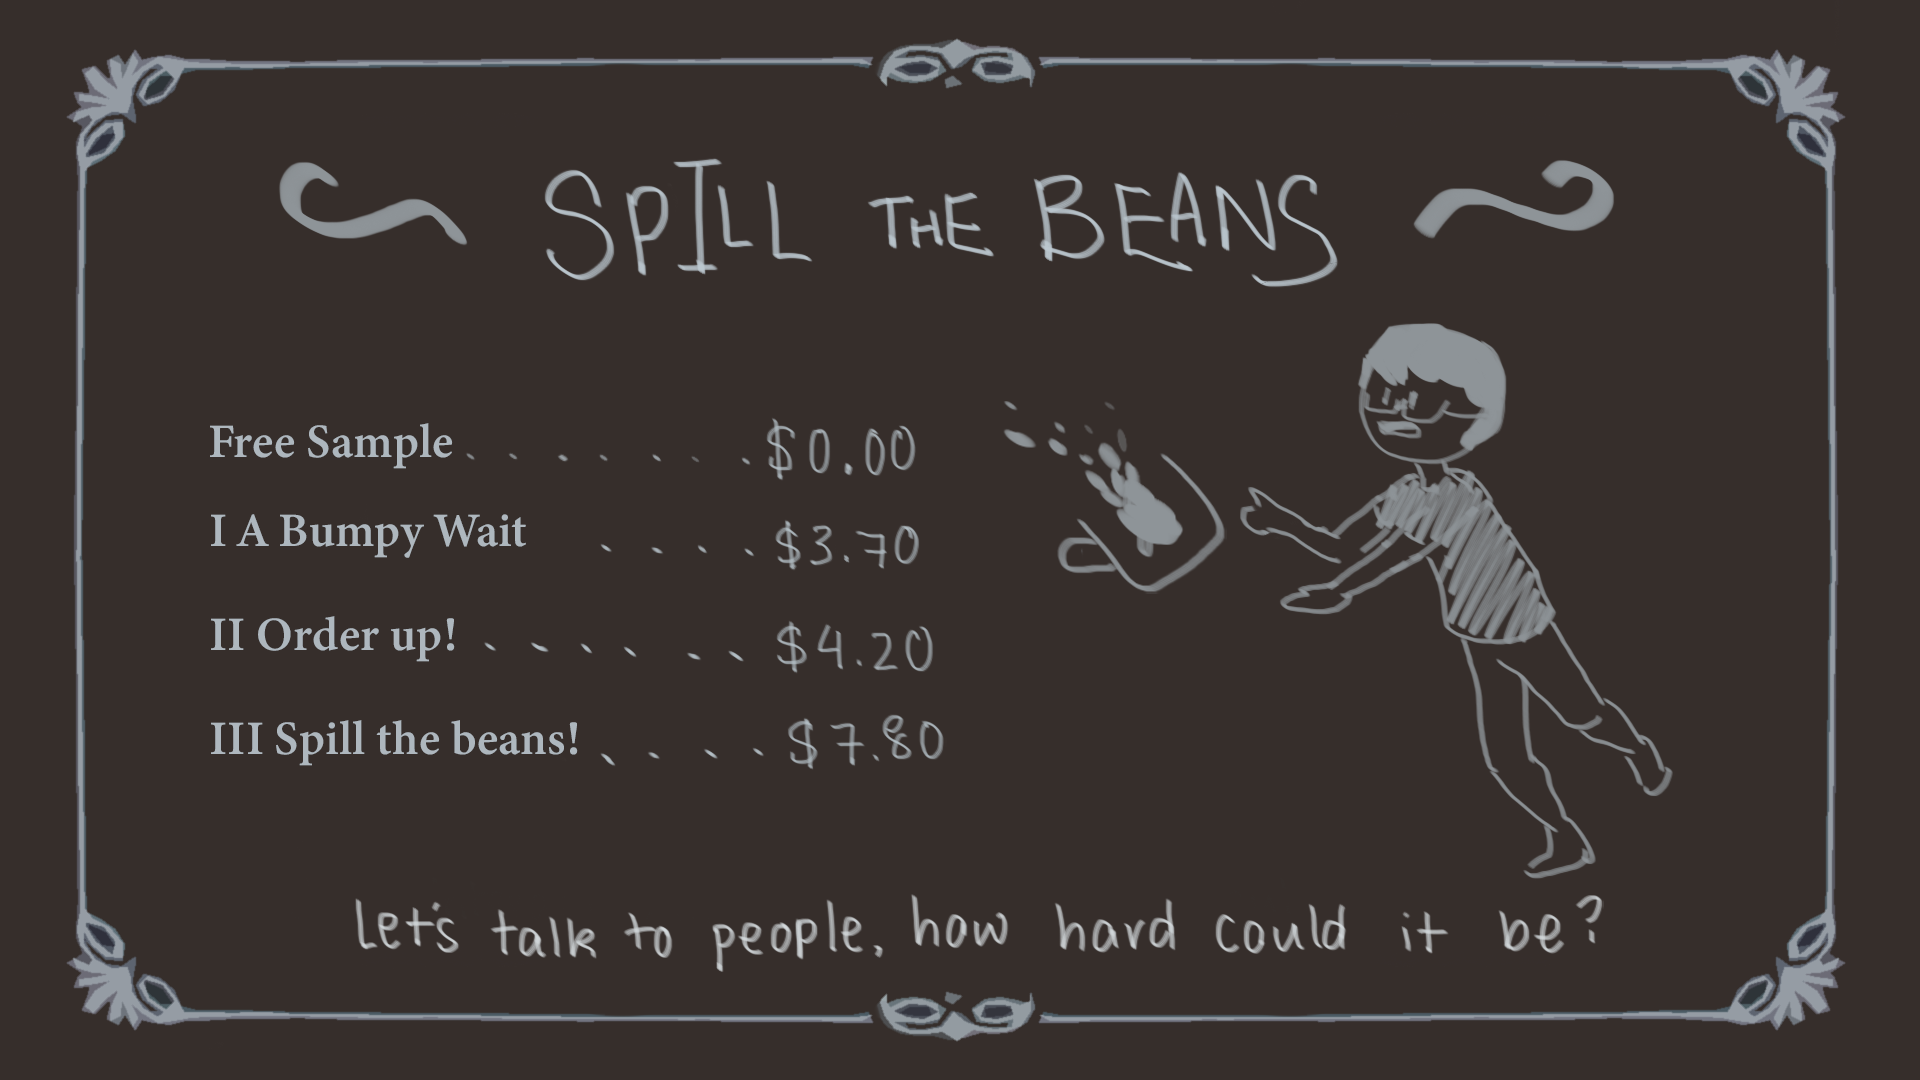 SPILL THE BEANS
Free Sample . . . . . . . $0.00
I A Bumpy Wait . . . . $3.70
II Order up! . . . . . . $4.20
III Spill the beans! . . . . $7.80
Let's talk to people, how hard could it be?